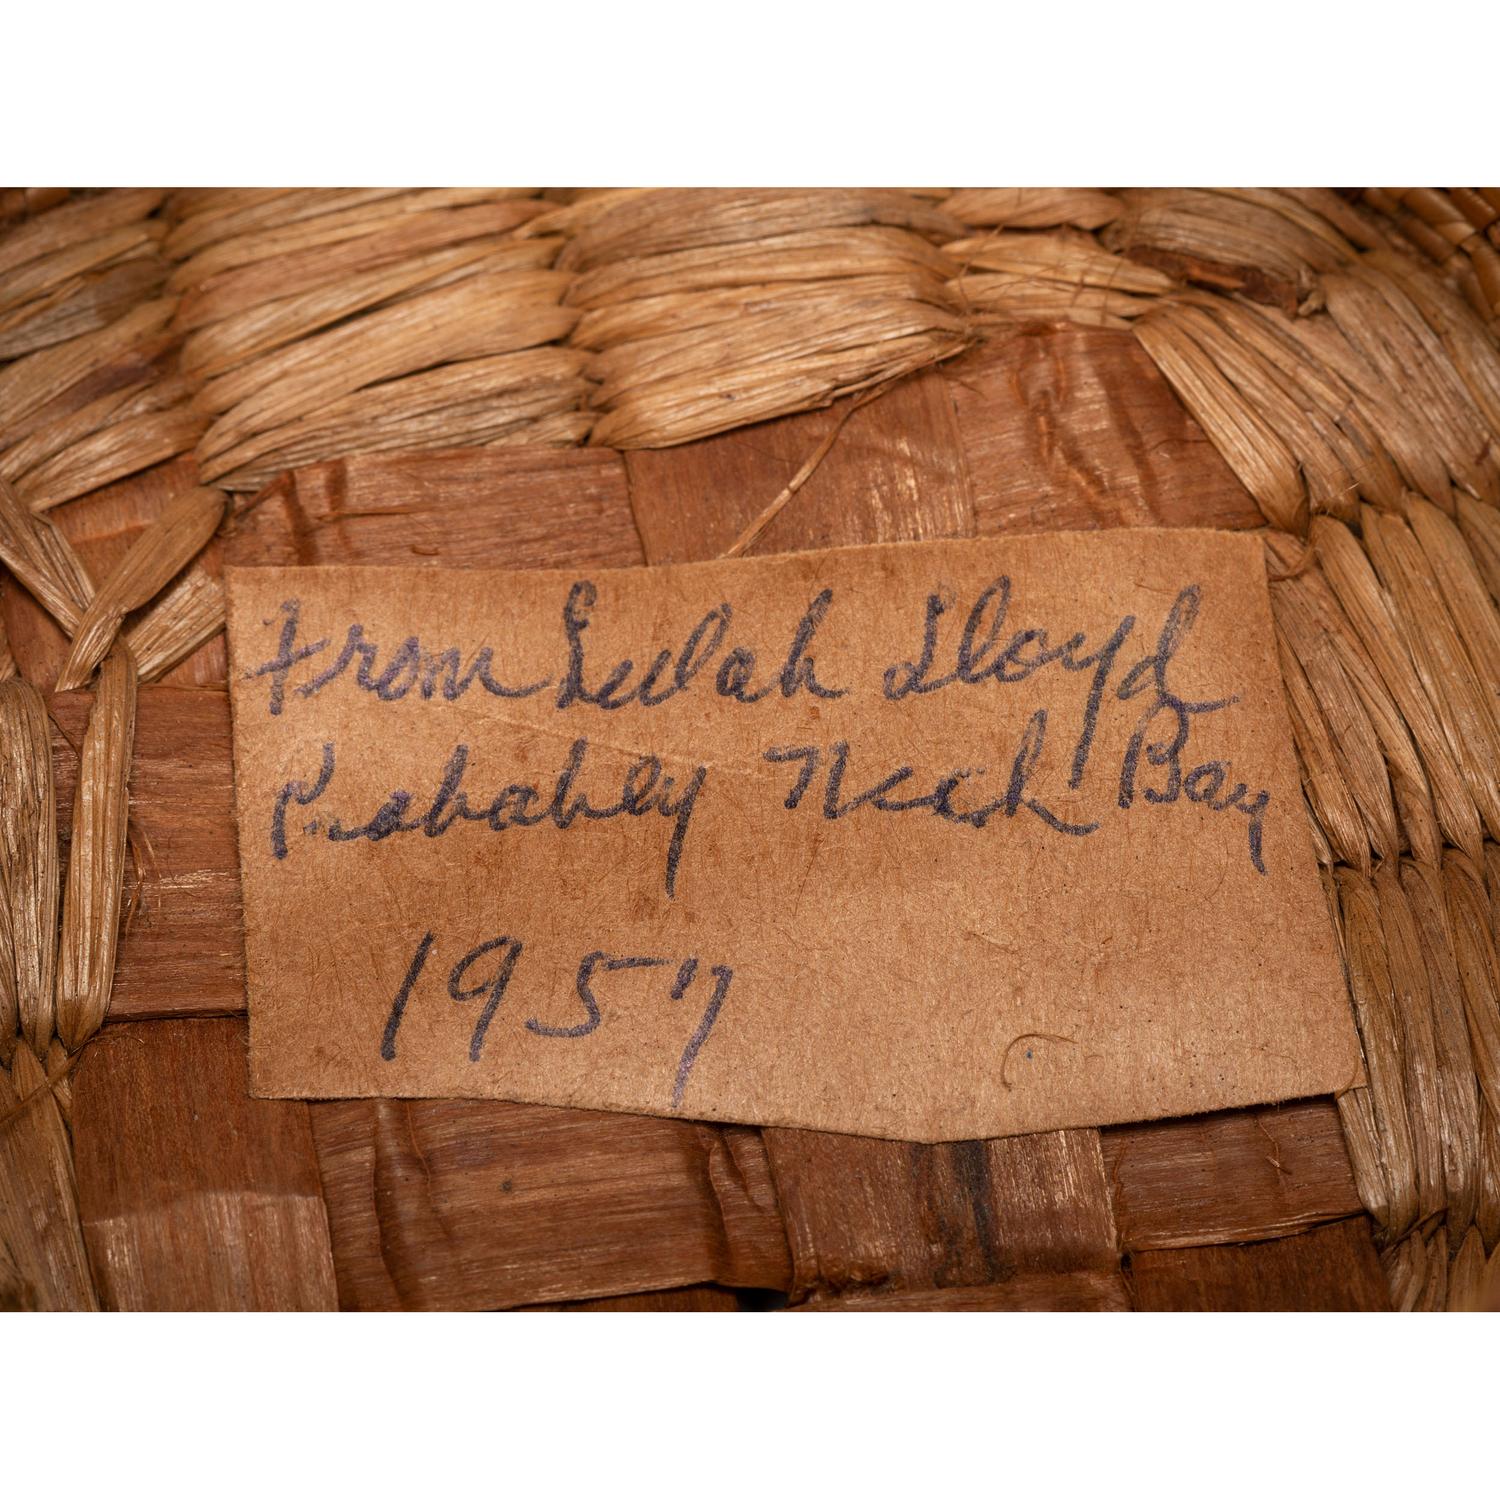 From Eulah Lloyd
Probably Neah Bay
1957